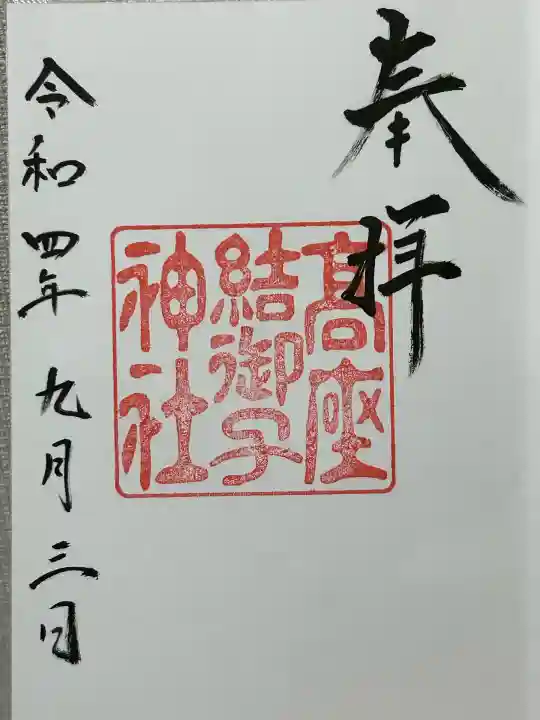 奉拝
髙座
結御子
神社
令和四年九月三日